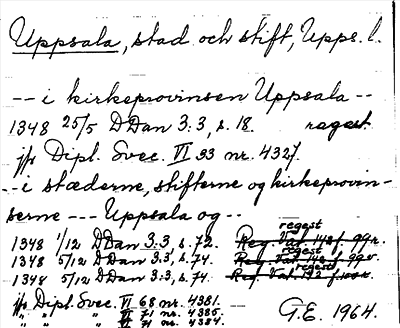 Uppsala, stad och stift, Upps. l.
-- i kirkeprovinsen Uppsala --
1348 25/5 DDan 3:3, s. 18. regest.
jfr Dipl. Svec. VI 33 nr. 4327.
-- i stæderne, stifterne og kirkeprovin-
serne --- Uppsala og --
regest
1348 1/12 DDan 3:3, s. 72. Reg. Vat. 142 f. 99r.
regest
1348 5/12 DDan 3:3, s. 74. Reg. Vat. 142 f. 99v.
regest
1348 5/12 DDan 3:3, s. 74. Reg. Vat. 142 f.
jfr Dipl. Svec. VI 68 nr. 4381.
" " " VI 71 nr. 4385.
" " " VI 71 nr. 4384.
G.E. 1964.